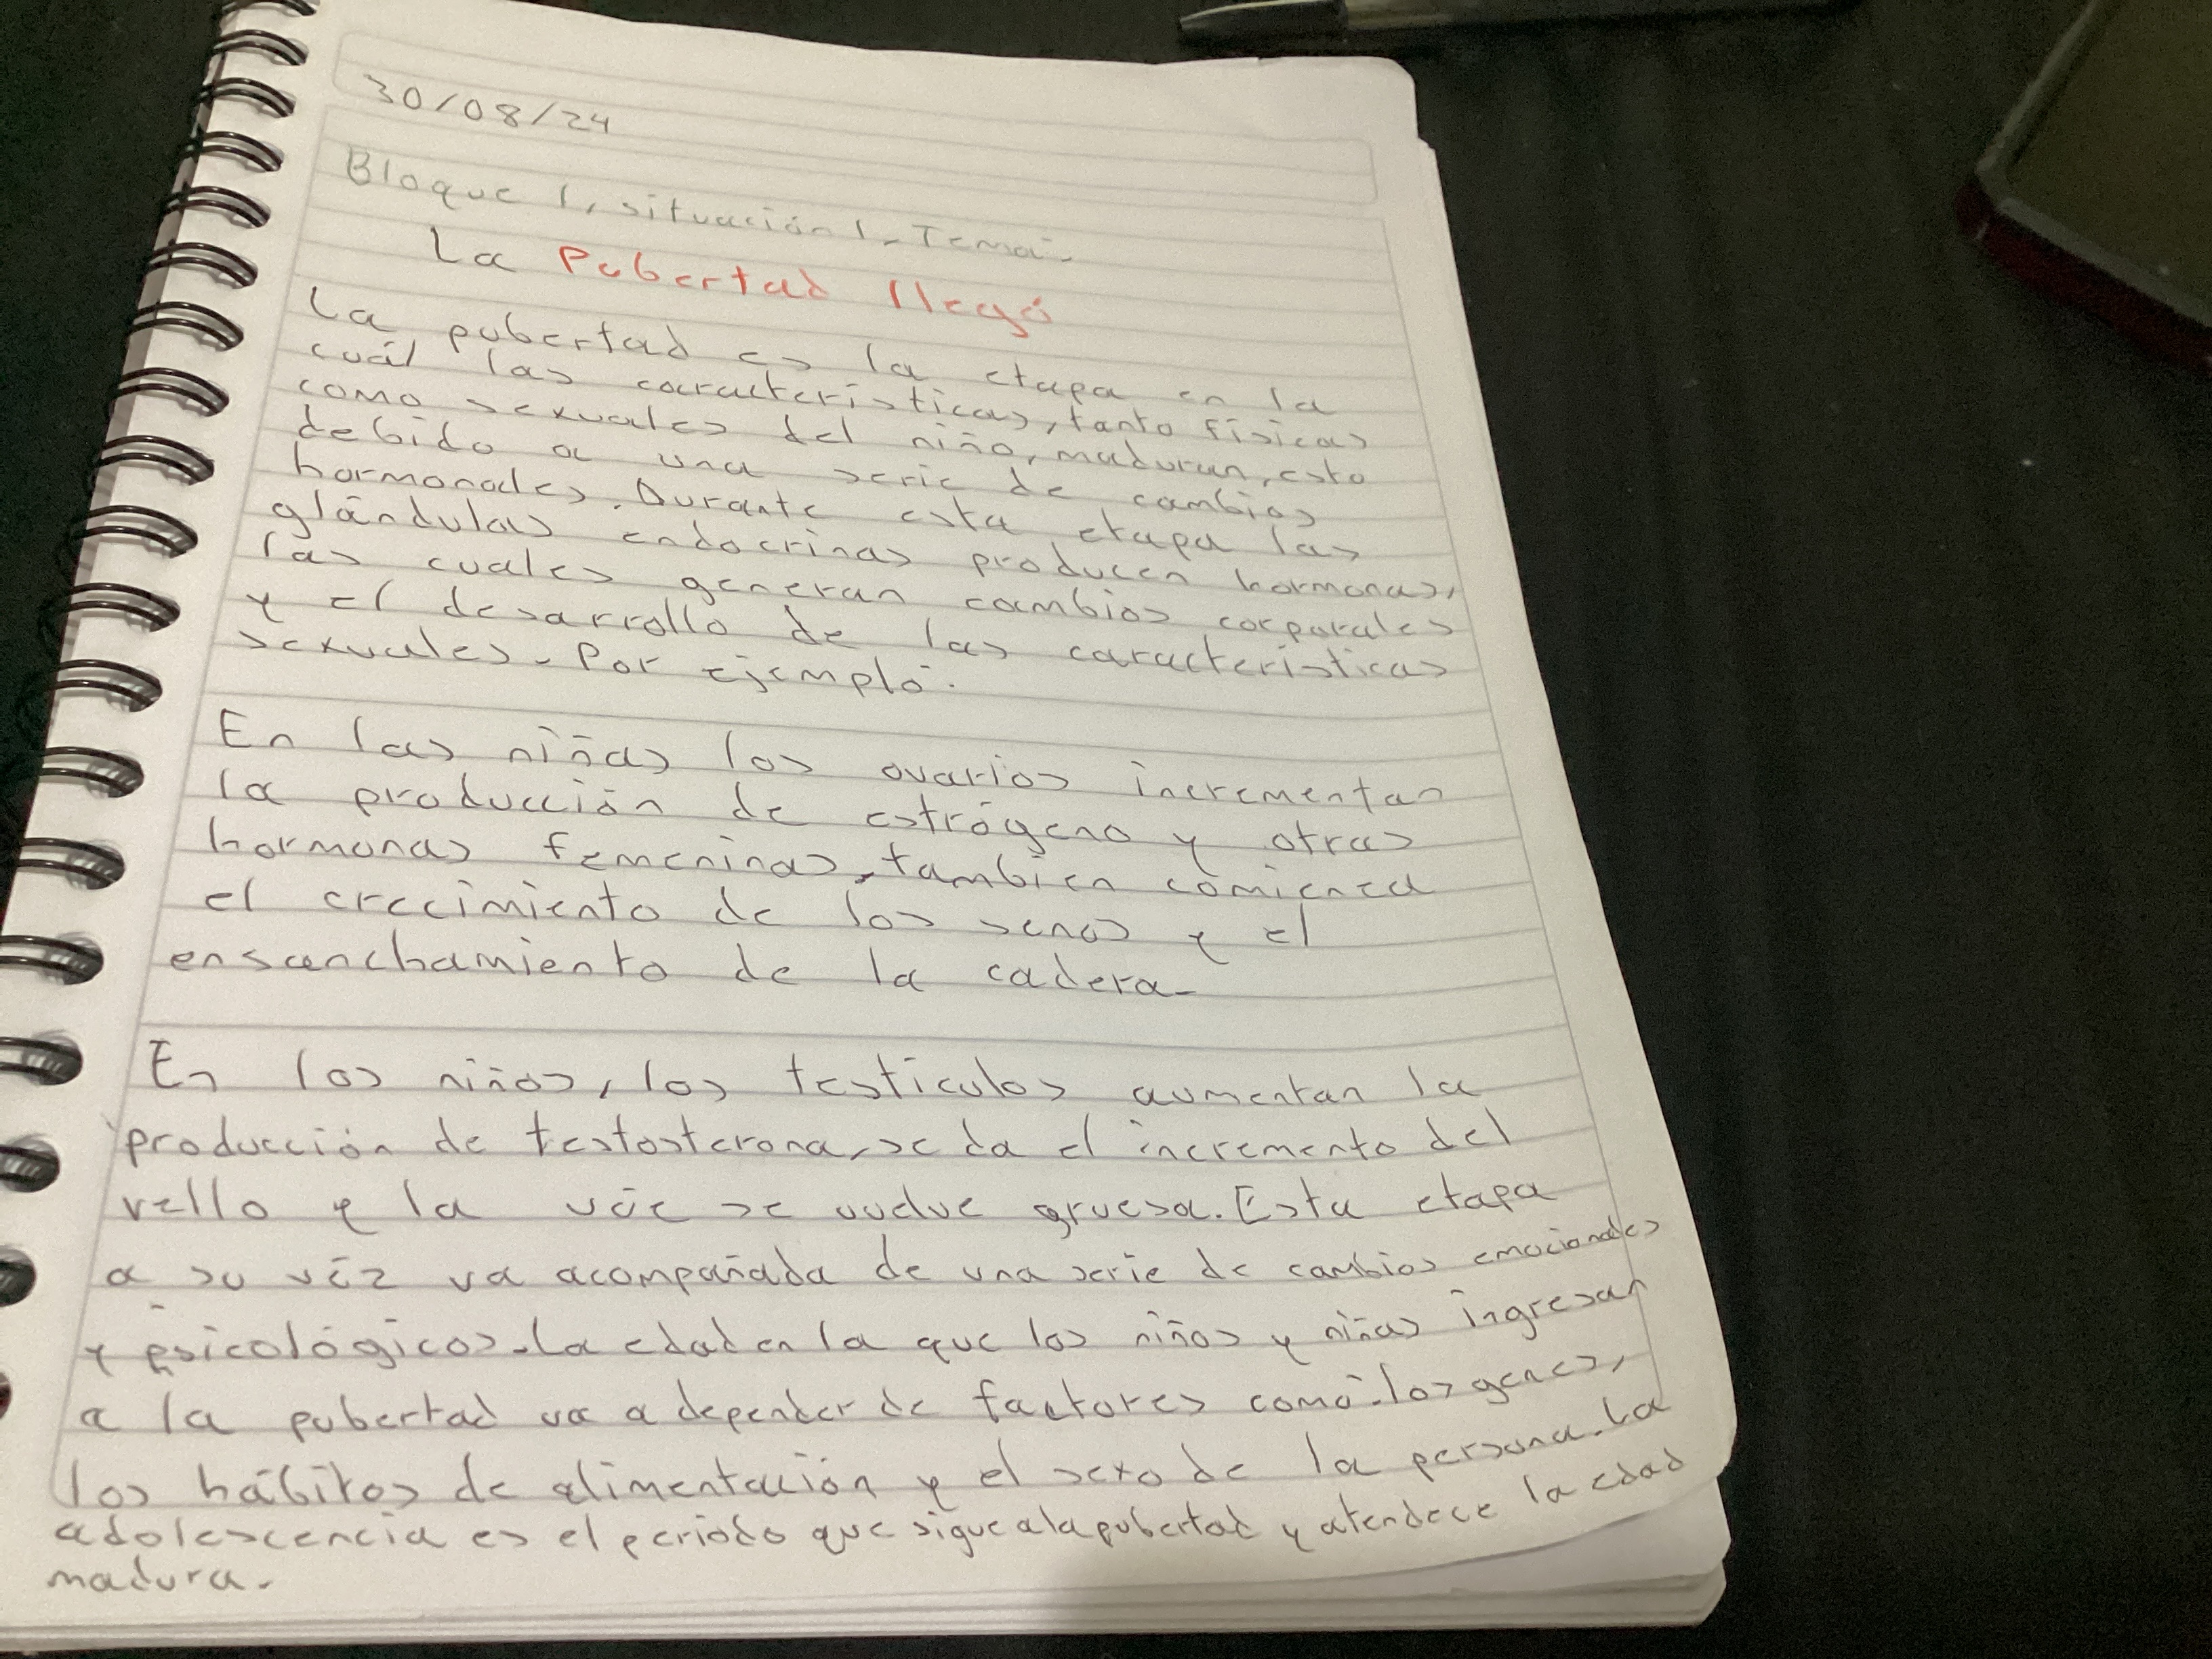 30/08/24
Bloque 1, situación 1. Tema:
La Pubertad llegó
La pubertad es la etapa en la
cuál las características, tanto físicas
como sexuales del niño, maduran, esto
debido a una serie de cambios
hormonales. Durante esta etapa las
glándulas endocrinas producen hormonas,
las cuales generan cambios corporales
y el desarrollo de las características
sexuales. Por ejemplo:
En las niñas los ovarios incrementan
la producción de estrógeno y otras
hormonas femeninas, también comienza
el crecimiento de los senos y el
ensanchamiento de la cadera.
En los niños, los testículos aumentan la
producción de testosterona, se da el incremento del
vello y la vóz se vuelve gruesa. Esta etapa
a su véz va acompañada de una serie de cambios emocionales
y psicológicos. La edad en la que los niños y niñas ingresan
a la pubertad va a depender de factores como: los genes,
los hábitos de alimentación y el sexo de la persona. La
adolescencia es el periodo que sigue a la pubertad y la edad
madura.